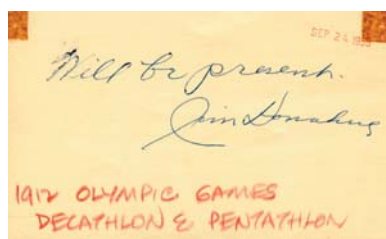 SEP 24
Will be present.
Jim Donahue
1912 OLYMPIC GAMES
DECATHLON & PENTATHLON